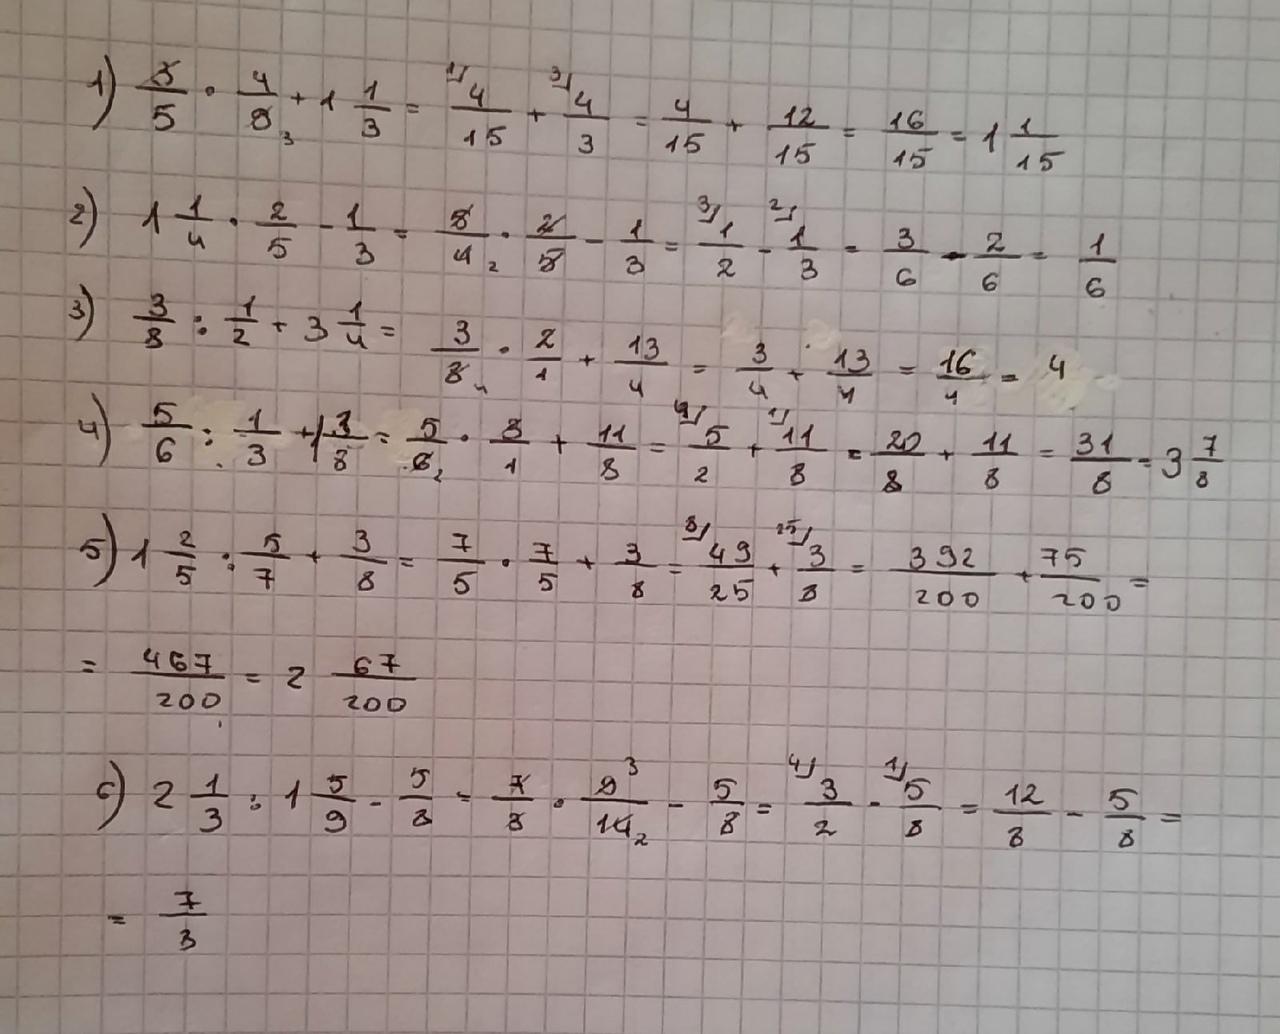 1) 3/5 · 4/9₃ + 1 1/3 = ¹⁾4/15 + ³⁾4/3 = 4/15 + 12/15 = 16/15 = 1 1/15
2) 1 1/4 · 2/5 - 1/3 = 5/4₂ · 2/5 - 1/3 = ³⁾1/2 - ²⁾1/3 = 3/6 - 2/6 = 1/6
3) 3/8 : 1/2 + 3 1/4 = 3/8₄ · 2/1 + 13/4 = 3/4 + 13/4 = 16/4 = 4
4) 5/6 : 1/3 + 1 3/8 = 5/6₂ · 3/1 + 11/8 = ⁴⁾5/2 + ¹⁾11/8 = 20/8 + 11/8 = 31/8 = 3 7/8
5) 1 2/5 : 5/7 + 3/8 = 7/5 · 7/5 + 3/8 = ⁸⁾49/25 + ²⁵⁾3/8 = 392/200 + 75/200 =
= 467/200 = 2 67/200
6) 2 1/3 : 1 5/9 - 5/8 = 7/3 · 9³/14₂ - 5/8 = ⁴⁾3/2 - ¹⁾5/8 = 12/8 - 5/8 =
= 7/8